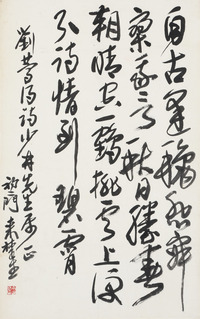 自古逢秋悲寂
寥我言秋日勝春
朝晴空一鶴排雲上便
引詩情到碧霄
劉夢得詩 少井先生屬正